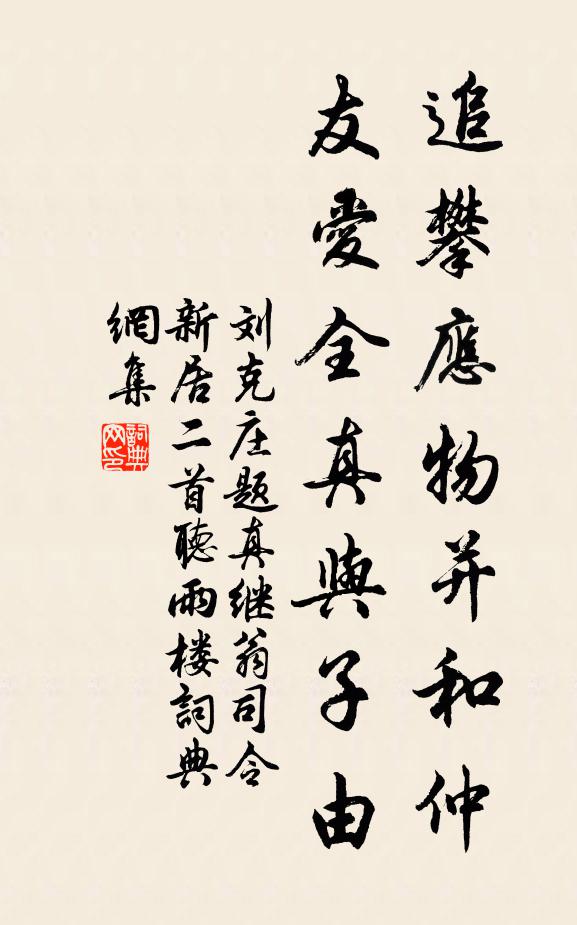 追攀應物并和仲
友愛全真與子由
刘克庄题真继翁司令
新居二首聴雨楼詞典
網集
詞典
网印